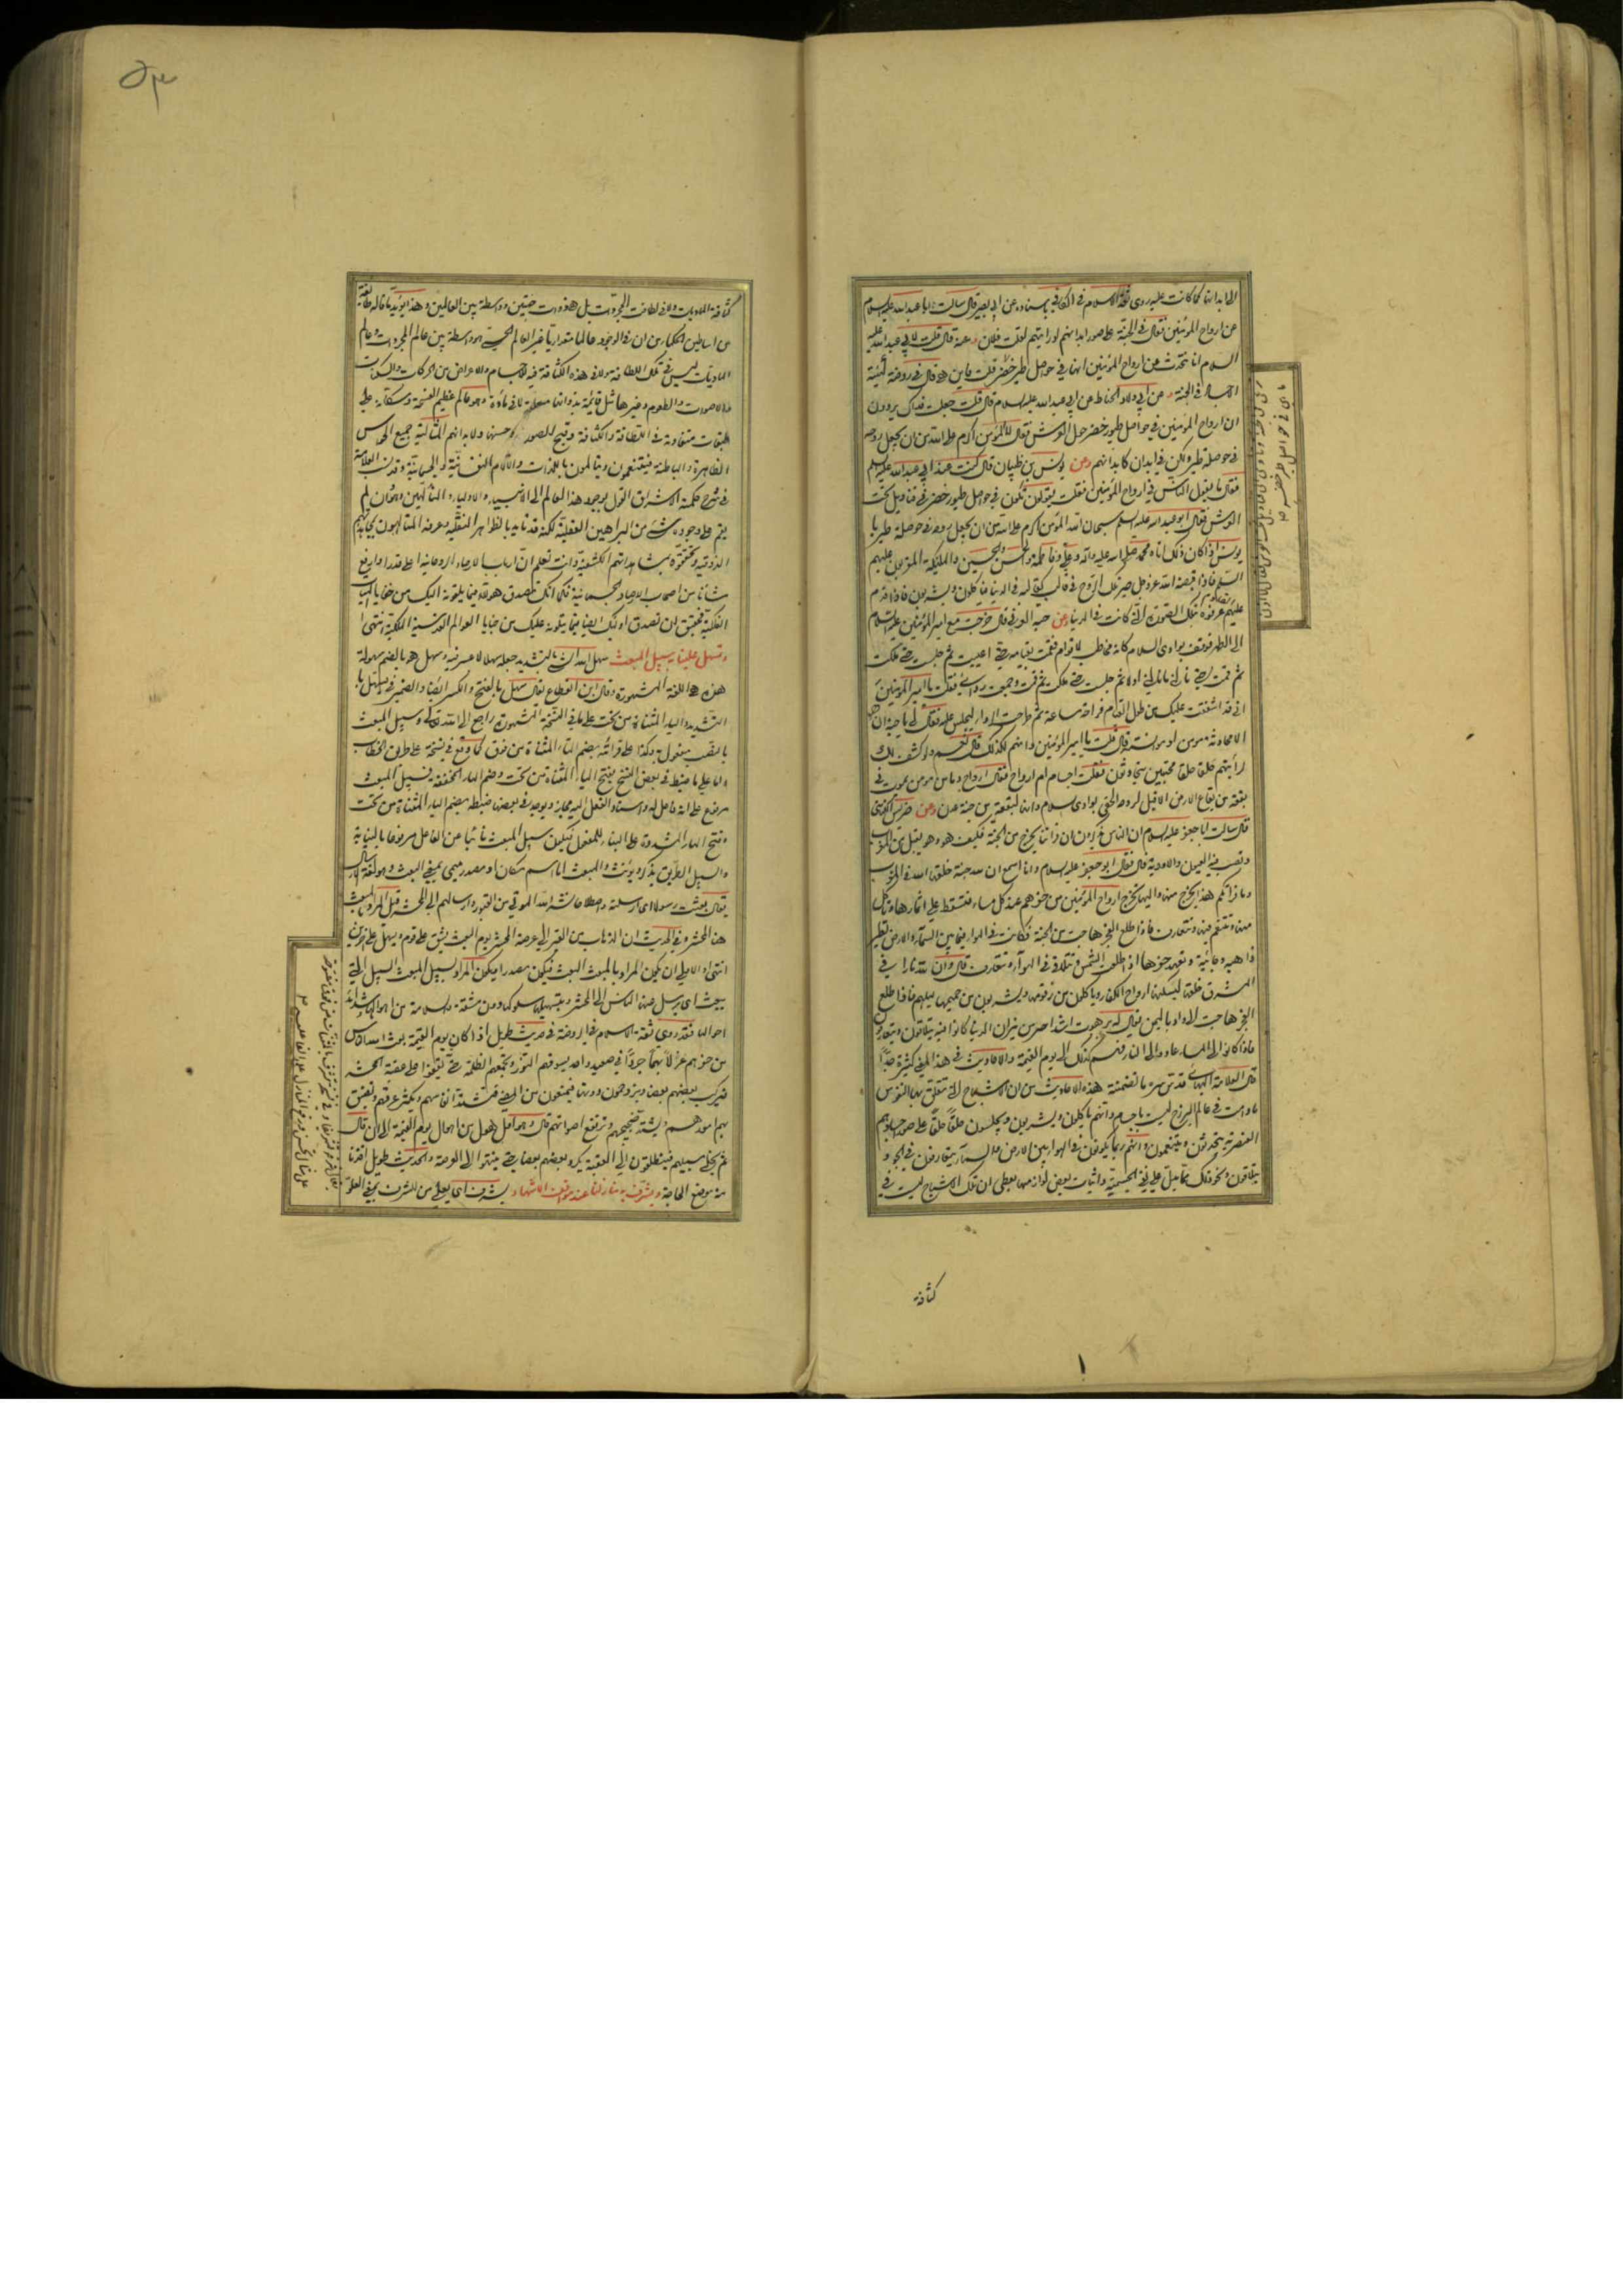 الى ابدانها كما كانت عليه روى ثقة الاسلام فى الكافى باسناده عن ابى بصير قال سالت ابا عبد الله عليه السلام
عن ارواح المؤمنين فقال فى الجنة على صور ابدانهم لو رايتهم لقلت فلان وعنه قال قلت لابى عبد الله عليه
السلام انا نتحدث عن ارواح المؤمنين انها فى حواصل طير خضر قلت فاين هى قال فى روضة كهيئة
الاجساد فى الجنة وعن ابى ولاد الحناط عن ابى عبد الله عليه السلام قال قلت جعلت فداك يروون
ان ارواح المؤمنين فى حواصل طيور خضر حول العرش فقال لا المؤمن اكرم على الله من ان يجعل روحه
فى حوصلة طير ولكن فى ابدان كابدانهم وعن يونس بن ظبيان قال كنت عند ابى عبد الله عليه السلم
فقال ما يقول الناس فى ارواح المؤمنين فقلت يقولون تكون فى حواصل طيور خضر فى قناديل تحت
العرش فقال ابو عبد الله عليه السلم سبحان الله المؤمن اكرم على الله من ان يجعل روحه فى حوصلة طير يا
يونس اذا كان ذلك اتاه محمد صلى الله عليه وآله وعلى وفاطمة والحسن والحسين والمليكة المقربون عليهم
السلم فاذا قبضه الله عز وجل صير تلك الروح فى قالب كقالبه فى الدنيا فياكلون ويشربون فاذا قدم
عليهم القادم عرفوه بتلك الصورة التى كانت فى الدنيا وعن حبة العرنى قال خرجت مع امير المؤمنين عليه السلام
الى الظهر فوقف بوادى السلام كانه مخاطب لاقوام فقمت بقيامه حتى اعييت ثم جلست حتى مللت
ثم قمت حتى نالنى ما نالنى اولا ثم جلست حتى مللت ثم قمت وجمعت ردائى فقلت يا امير المؤمنين
انى قد اشفقت عليك من طول القيام فراحة ساعة ثم طرحت الرداء ليجلس عليه فقال لى يا حبة ان هو
الا محادثة مومن او موانسته قال قلت يا امير المؤمنين وانهم لكذلك قال نعم ولو كشف لك
لرأيتهم حلقا حلقا محتبين يتحادثون فقلت اجسام ام ارواح فقال ارواح وما من مومن يموت فى
بقعة من بقاع الارض الا قيل لروحه الحقى بوادى السلام وانها لبقعة من جنة عدن وعن ضريس الكناسى
قال سالت ابا جعفر عليه السلام ان الناس يذكرون ان فراتنا يخرج من الجنة فكيف هو وهو يقبل من المغرب
وتصب فيه العيون والاودية قال فقال ابو جعفر عليه السلام وانا اسمع ان لله جنة خلقها الله فى المغرب
وماء فراتكم هذا يخرج منها واليها تخرج ارواح المؤمنين من حفرهم عند كل مساء فتسقط على اثمارها وتاكل
منها وتتنعم فيها وتتعارف فاذا طلع الفجر هاجت من الجنة فكانت فى الهواء فيما بين السماء والارض تطير
ذاهبة وجائية وتعهد حفرها اذا طلعت الشمس وتتلاقى فى الهوآء وتتعارف قال وان لله نارا فى
المشرق خلقها ليسكنها ارواح الكفار وياكلون من زقومها ويشربون من حميمها ليلهم فاذا طلع
الفجر هاجت الى واد باليمن يقال له برهوت اشد حرا من نيران الدنيا كانوا فيه يتلاقون ويتعارفون
فاذا كانوا الى المساء عادوا الى النار فهم كذلك الى يوم القيمة والاحاديث فى هذا المعنى كثيرة جدا
قال العلامة البهائى قدس سره ما تضمنته هذه الاحاديث من ان الاشباح التى تتعلق بها النفوس
ما دامت فى عالم البرزخ ليست باجسام وانهم ياكلون ويشربون ويجلسون حلقا حلقا على صور اجسادهم
العنصرية يتحدثون ويتنعمون وانهم ربما يكونون فى الهواء بين الارض والسماء يتعارفون فى الجو و
يتلاقون ونحو ذلك مما يدل على نفى الجسمية واثبات بعض لوازمها يعطى ان تلك الاشباح ليست فى
كثافة
٥٣
كثافة الماديات ولا فى لطافة المجردات بل هى ذوات جهتين وواسطة بين العالمين وهذا يؤيد ما قاله طائفة
من اساطين الحكماء من ان فى الوجود عالما مقداريا غير العالم الحسى هو واسطة بين عالم المجردات وعالم
الماديات ليس فى تلك اللطافة ولا فى هذه الكثافة فيه للاجسام والاعراض من الحركات والسكنات
والاصوات والطعوم وغيرها مثل قائمة بذواتها معلقة لا فى مادة وهو عالم عظيم الفسحة وسكانه على
طبقات متفاوتة فى اللطافة والكثافة وقبح الصورة وحسنها ولابدانهم المثالية جميع الحواس
الظاهرة والباطنة فيتنعمون ويتالمون باللذات والآلام النفسانية والجسمانية وقد نسب العلامة
فى شرح حكمة الاشراق القول بوجود هذا العالم الى الانبيا والاوليا والمتألهين وهو وان لم
يقم على وجوده شئ من البراهين العقلية لكنه قد تايد بالظواهر النقلية وعرفه المتالهون بمجاهداتهم
الذوقية وتحققوه بمشاهداتهم الكشفية وانت تعلم ان ارباب الارصاد الروحانية اعلى قدرا وارفع
شانا من اصحاب الارصاد الجسمانية فكما انك تصدق هؤلاء فيما يلقونه اليك من خفايا الهيئات
الفلكية فحقيق ان تصدق اولئك ايضا فيما يتلونه عليك من خبايا العوالم القدسية الملكية انتهى
وتسهل علينا به سبيل المبعث سهل الله الشى بالتشديد جعله سهلا لا عسر فيه وسهل هو بالضم سهولة
هذه هى اللغة المشهورة وقال ابن القطاع يقال سهل بالفتح والكسر ايضا والضمير فى يسهل با
لتشديد والياء المثناة من تحت على ما فى النسخة المشهورة راجع الى الله تعالى وسبيل المبعث
بالنصب مفعول به وكذا على قرائة بضم التاء المثناة من فوق كما وقع فى نسخة على طريق الخطاب
واما على ما ضبط فى بعض النسخ بفتح الياء المثناة من تحت وضم الهاء المخففة فسبيل المبعث
مرفوع على انه فاعل له واسناد الفعل اليه مجاز ويوجد فى بعضها ضبطه بضم الياء المثناة من تحت
وفتح الهاء المشددة على البناء للمفعول فيكون سبيل المبعث نائبا عن الفاعل مرفوعا بالنيابة
والسبيل الطريق يذكر ويؤنث والمبعث اما اسم مكان او مصدر ميمى بمعنى البعث وهو لغة الارسال
يقال بعثت رسولا اى ارسلته واصطلاحا نشر الله الموتى من القبور وارسالهم الى المحشر قيل المراد بالمبعث
هنا المحشر وفى الحديث ان الذهاب من القبر الى عرصة المحشر يوم البعث يشق على قوم ويسهل على آخرين
انتهى والاولى ان يكون المراد بالمبعث البعث فيكون مصدرا فيكون المراد بسبيل المبعث السبيل التى
يبعث اى يرسل فيها الناس الى المحشر وبتسهيلها سلوكها دون مشقة وسلامة من اهوالها وشدائد
احوالها فقد روى ثقة الاسلام فى الروضة فى حديث طويل اذا كان يوم القيمة بعث الله الناس
من حفرهم عزلا بهما جردا فى صعيد واحد يسوقهم النور وتجمعهم الظلمة حتى يقفوا على عقبة المحشر
فيركب بعضهم بعضا ويزدحمون دونها فيمنعون من المضى فتشتد انفاسهم ويكثر عرقهم وتضيق
بهم امورهم ويشتد ضجيجهم وترتفع اصواتهم قال وهو اول هول من اهوال يوم القيمة الى ان قال
ثم يخلى سبيلهم فينطلقون الى العقبة يكرد بعضهم بعضا حتى ينتهوا الى العرصة والحديث طويل اخذنا
منه موضع الحاجة ويشرف به منازلنا عند مواقف الاشهاد يشرف اى يعلى من الشرف بمعنى العلو